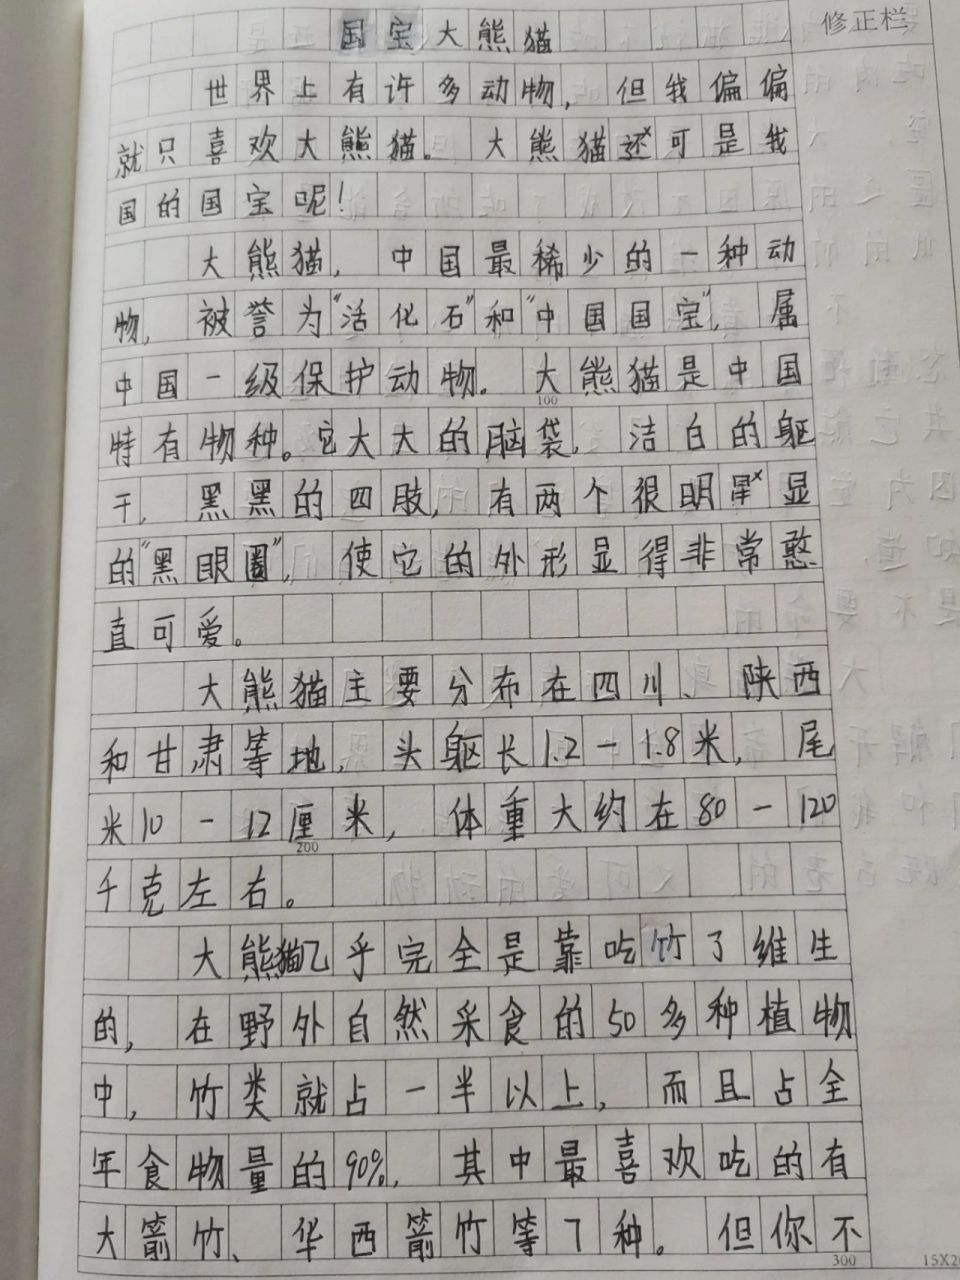 修正栏
国宝大熊猫
世界上有许多动物，但我偏偏
就只喜欢大熊猫。大熊猫还可是我
国的国宝呢！
大熊猫，中国最稀少的一种动
物，被誉为“活化石”和“中国国宝”，属
中国一级保护动物。大熊猫是中国
100
特有物种。它大大的脑袋，洁白的躯
干，黑黑的四肢，有两个很明显
的“黑眼圈”，使它的外形显得非常憨
直可爱。
大熊猫主要分布在四川、陕西
和甘肃等地，头躯长1.2－1.8米，尾
米10－12厘米，体重大约在80－120
200
千克左右。
大熊猫几乎完全是靠吃竹了维生
的，在野外自然采食的50多种植物
中，竹类就占一半以上，而且占全
年食物量的90%，其中最喜欢吃的有
大箭竹、华西箭竹等7种。但你不
300